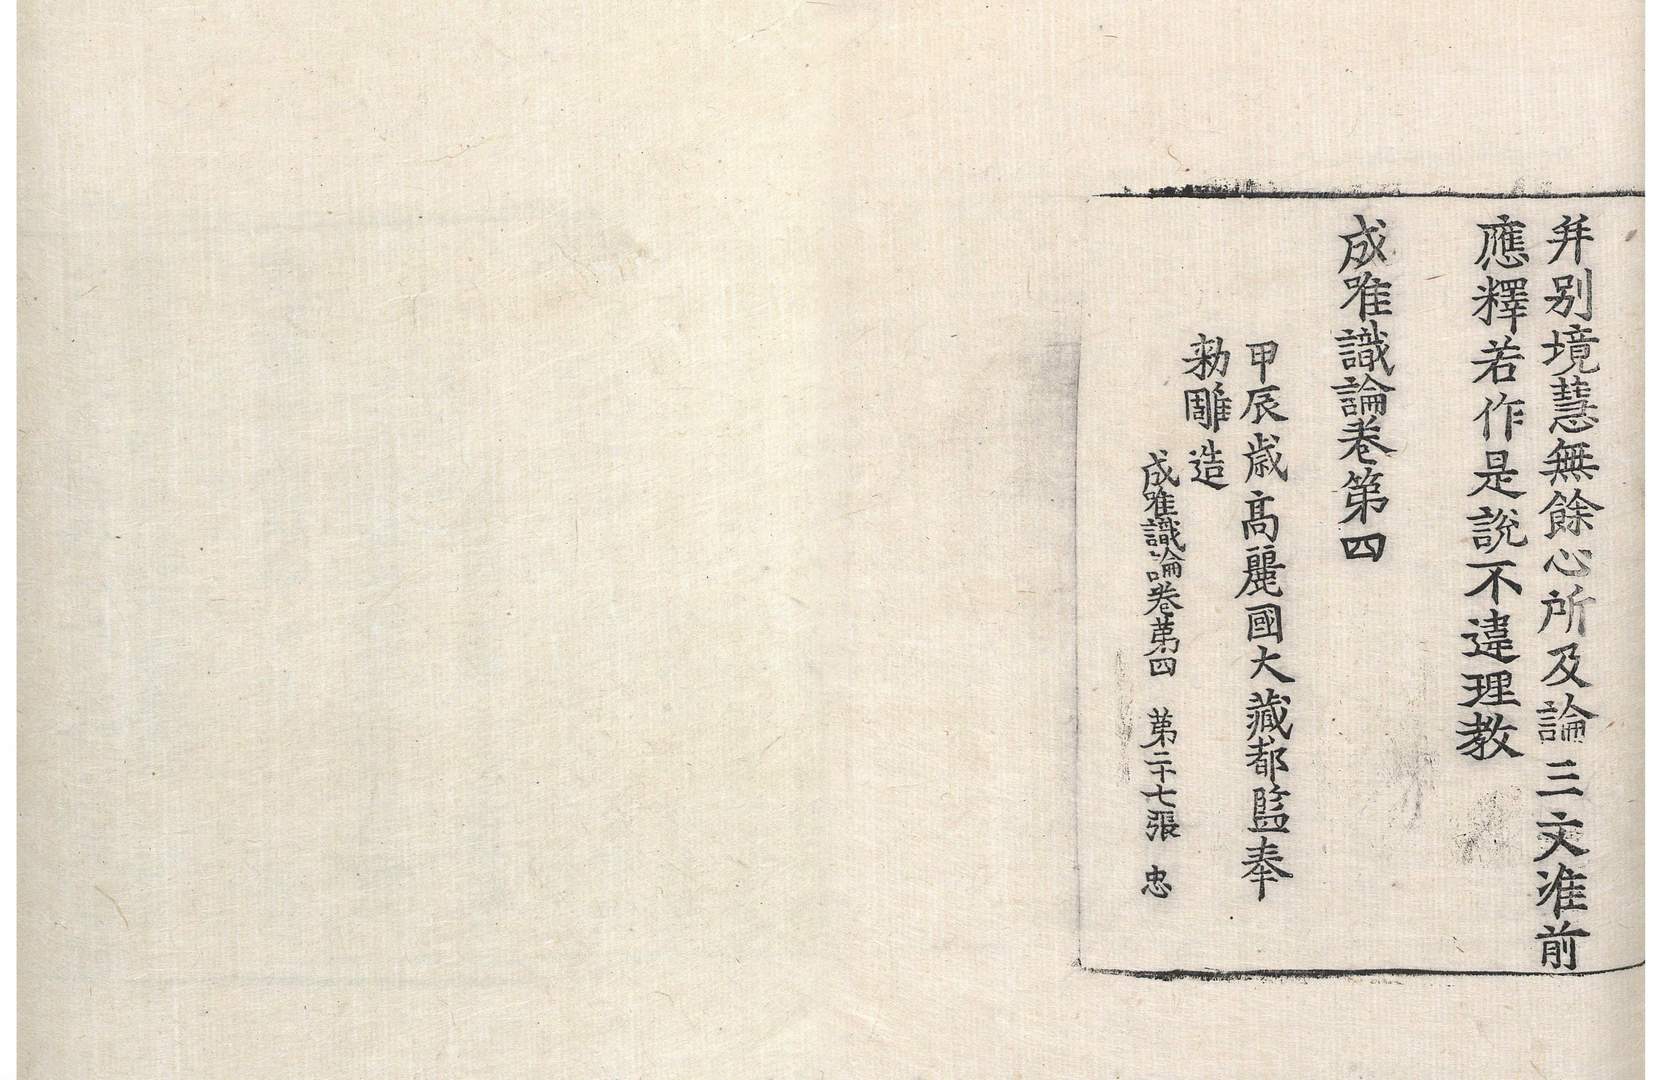 并别境慧無餘心所及論三文准前
應釋若作是說不違理教
成唯識論卷第四
甲辰歲高麗國大藏都監奉
勑雕造
成唯識論卷第四 第二十七張 忠